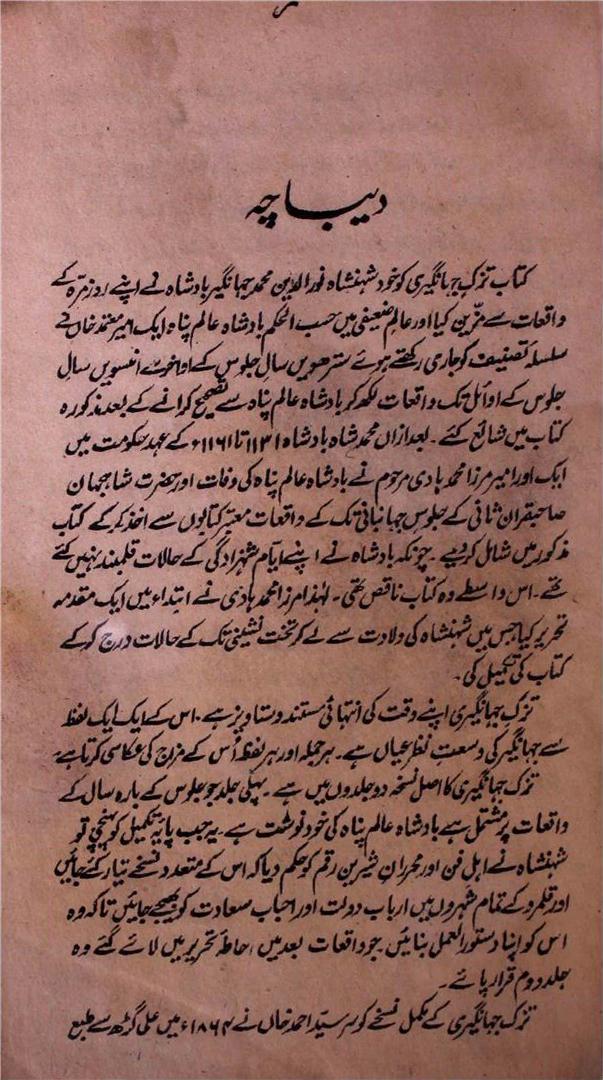 دیباچہ
کتاب تزک جہانگیری کو خود شہنشاہ نورالدین محمد جہانگیر بادشاہ نے اپنے روزمرّہ کے
واقعات سے مزّین کیا اور عالم ضعیفی میں حسب الحکم بادشاہ عالم پناہ ایک امیر معتمد خاں نے
سلسلۂ تصنیف کو جاری رکھتے ہوئے سترھویں سال جلوس کے اواخر سے انیسویں سالِ
جلوس کے اوائل تک واقعات لکھ کر بادشاہ عالم پناہ سے تصحیح کرانے کے بعد مذکورہ
کتاب میں شائع کئے۔ بعد ازاں محمد شاہ بادشاہ ۱۱۳۱ تا ۱۱۶۱ء کے عہد حکومت میں
ایک اور امیر مرزا محمد ہادی مرحوم نے بادشاہ عالم پناہ کی وفات اور حضرت شاہجہان
صاحبقران ثانی کے جلوس جہانبانی تک کے واقعات معتبر کتابوں سے اخذ کر کے کتاب
مذکور میں شامل کر دیے۔ چونکہ بادشاہ نے اپنے ایّام شہزادگی کے حالات قلمبند نہیں کئے
تھے۔ اس واسطے وہ کتاب ناقص تھی۔ لہٰذا مرزا محمد ہادی نے ابتداء میں ایک مقدمہ
تحریر کیا جس میں شہنشاہ کی ولادت سے لے کر تخت نشینی تک کے حالات درج کر کے
کتاب کی تکمیل کی۔
تزک جہانگیری اپنے وقت کی انتہائی مستند دستاویز ہے۔ اس کے ایک ایک لفظ
سے جہانگیر کی وسعتِ نظر عیاں ہے۔ ہر جملہ اور ہر لفظ اُس کے مزاج کی عکاسی کرتا ہے۔
تزک جہانگیری کا اصل نسخہ دو جلدوں میں ہے۔ پہلی جلد جو جلوس کے بارہ سال کے
واقعات پر مشتمل ہے بادشاہ عالم پناہ کی خود نوشت ہے۔ یہ جب پایۂ تکمیل کو پہنچی تو
شہنشاہ نے اہل فن اور محرران شیریں رقم کو حکم دیا کہ اس کے متعدد نسخے تیار کئے جائیں
اور قلمرو کے تمام شہروں میں ارباب دولت اور احباب سعادت کو بھیجے جائیں تاکہ وہ
اس کو اپنا دستور العمل بنائیں۔ جو واقعات بعد میں احاطۂ تحریر میں لائے گئے وہ
جلد دوم قرار پائے۔
تزک جہانگیری کے مکمل نسخے کو سر سیّد احمد خاں نے ۱۸۶۴ء میں علی گڑھ سے طبع